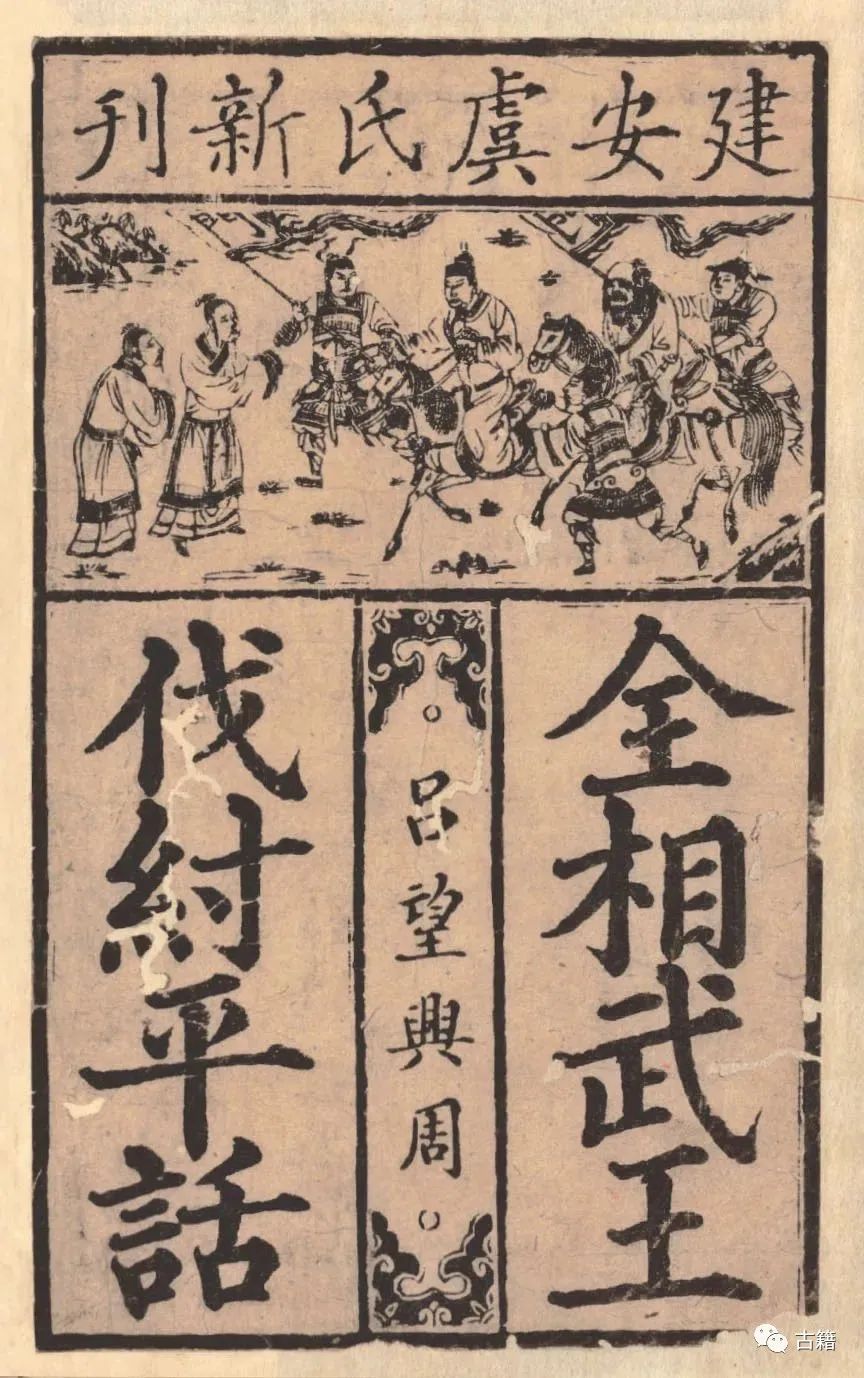 建安虞氏新刊
全相武王
呂望興周
伐紂平話
古籍